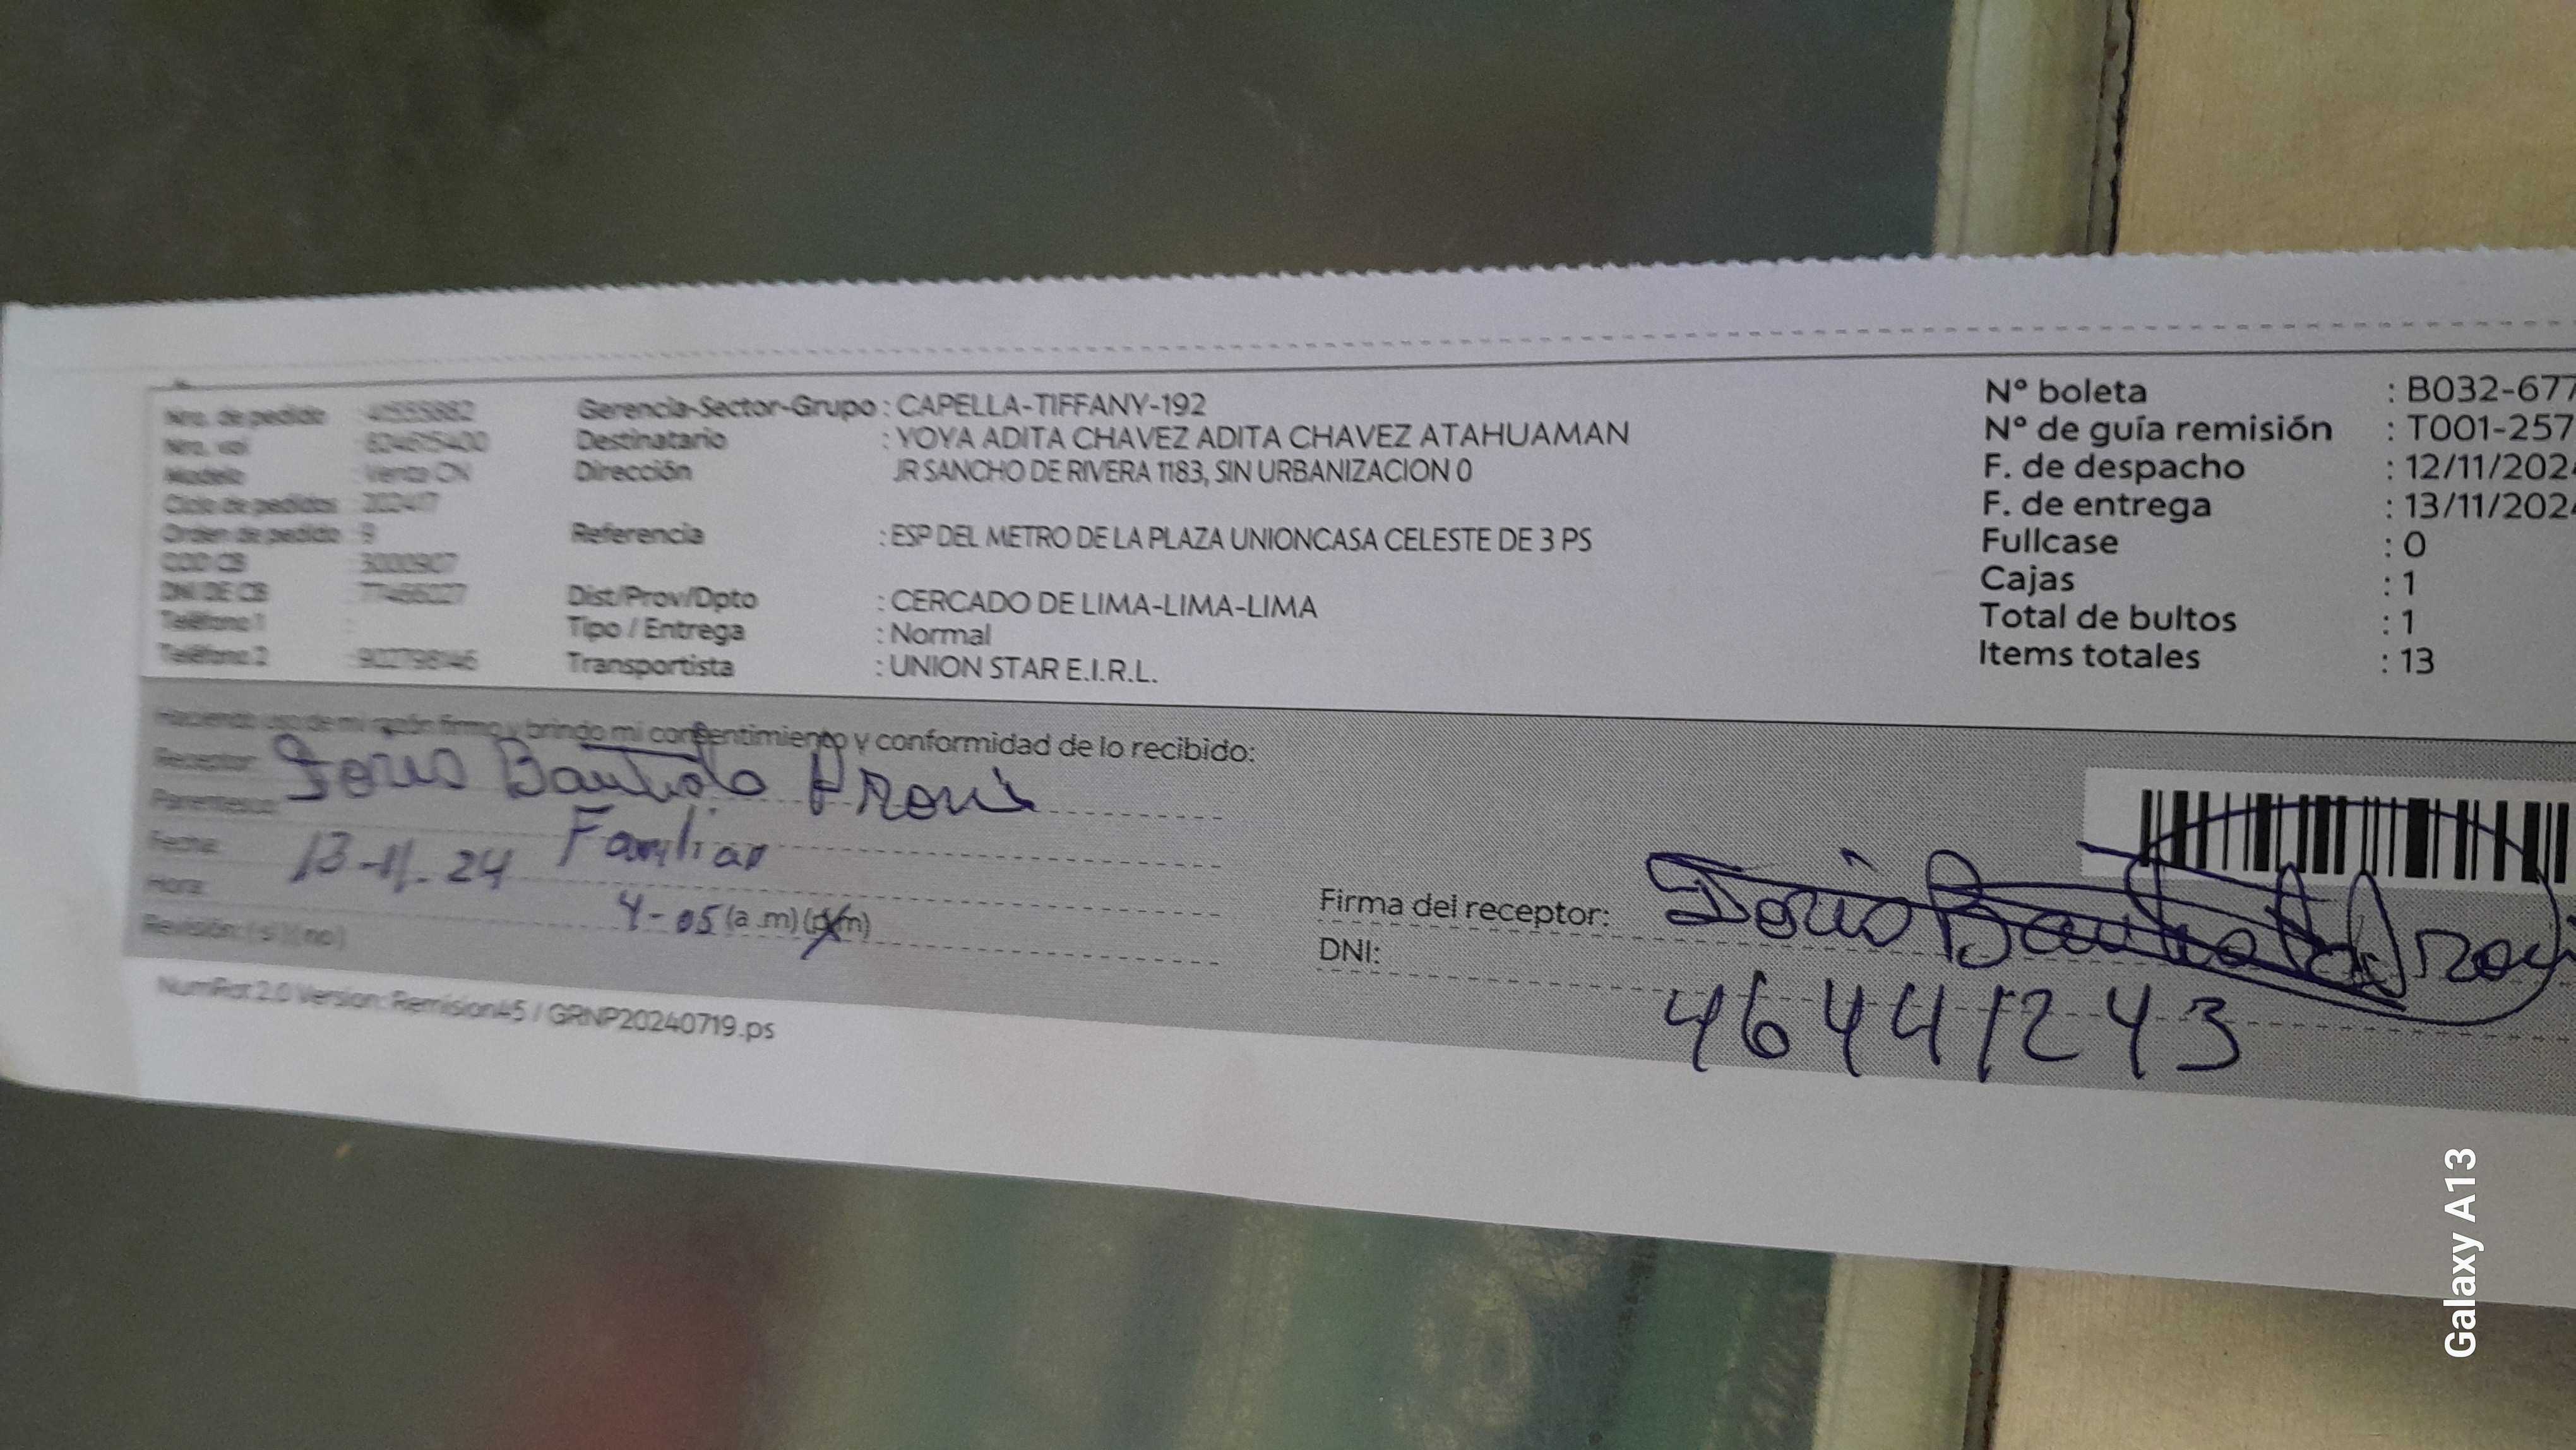 Nro. de pedido
Nro. vol
Modelo : Venta CN
Ciclo de pedidos : 202417
Orden de pedido : 9
COD CB : 3000907
DNI DE CB : 77466027
Teléfono 1 :
Teléfono 2 : 902798146
Gerencia-Sector-Grupo : CAPELLA-TIFFANY-192
Destinatario : YOYA ADITA CHAVEZ ADITA CHAVEZ ATAHUAMAN
Dirección JR SANCHO DE RIVERA 1183, SIN URBANIZACION 0
Referencia : ESP DEL METRO DE LA PLAZA UNIONCASA CELESTE DE 3 PS
Dist/Prov/Dpto : CERCADO DE LIMA-LIMA-LIMA
Tipo / Entrega : Normal
Transportista : UNION STAR E.I.R.L.
Nº boleta : B032-677
Nº de guía remisión : T001-257
F. de despacho : 12/11/202
F. de entrega : 13/11/202
Fullcase : 0
Cajas : 1
Total de bultos : 1
Items totales : 13
Haciendo uso de mi razón firmo y brindo mi consentimiento y conformidad de lo recibido:
Receptor: Doris Bautista
Parentesco: Familiar
Fecha: 13-11-24
Hora: 4-05 (a .m) (p.m)
Revisión: ( si ) ( no )
Firma del receptor: Doris Bautista
DNI: 46441243
NumRot 2.0 Version: Remision45 / GRNP20240719.ps
Galaxy A13